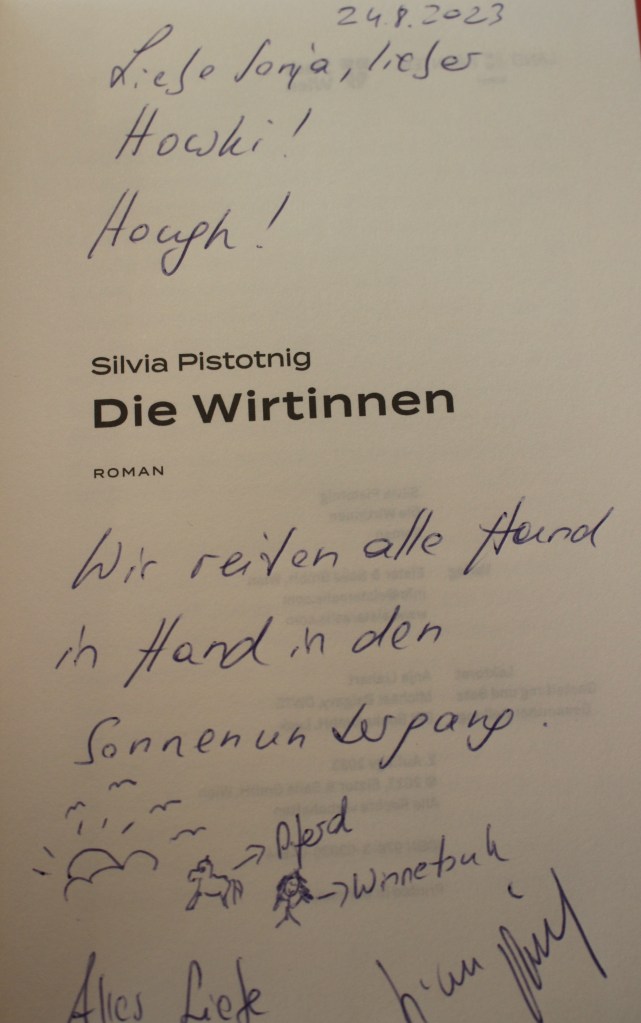 24.8.2023
Liebe Sonja, lieber
Howki!
Hough!
Silvia Pistotnig
Die Wirtinnen
ROMAN
Wir reiten alle Hand
in Hand in den
Sonnenuntergang.
→ Pferd
Alles Liebe